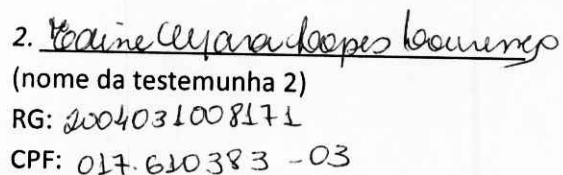 2. Taine Uyara Lopes Lourenço
(nome da testemunha 2)
RG: 2004031008171
CPF: 017.610383-03